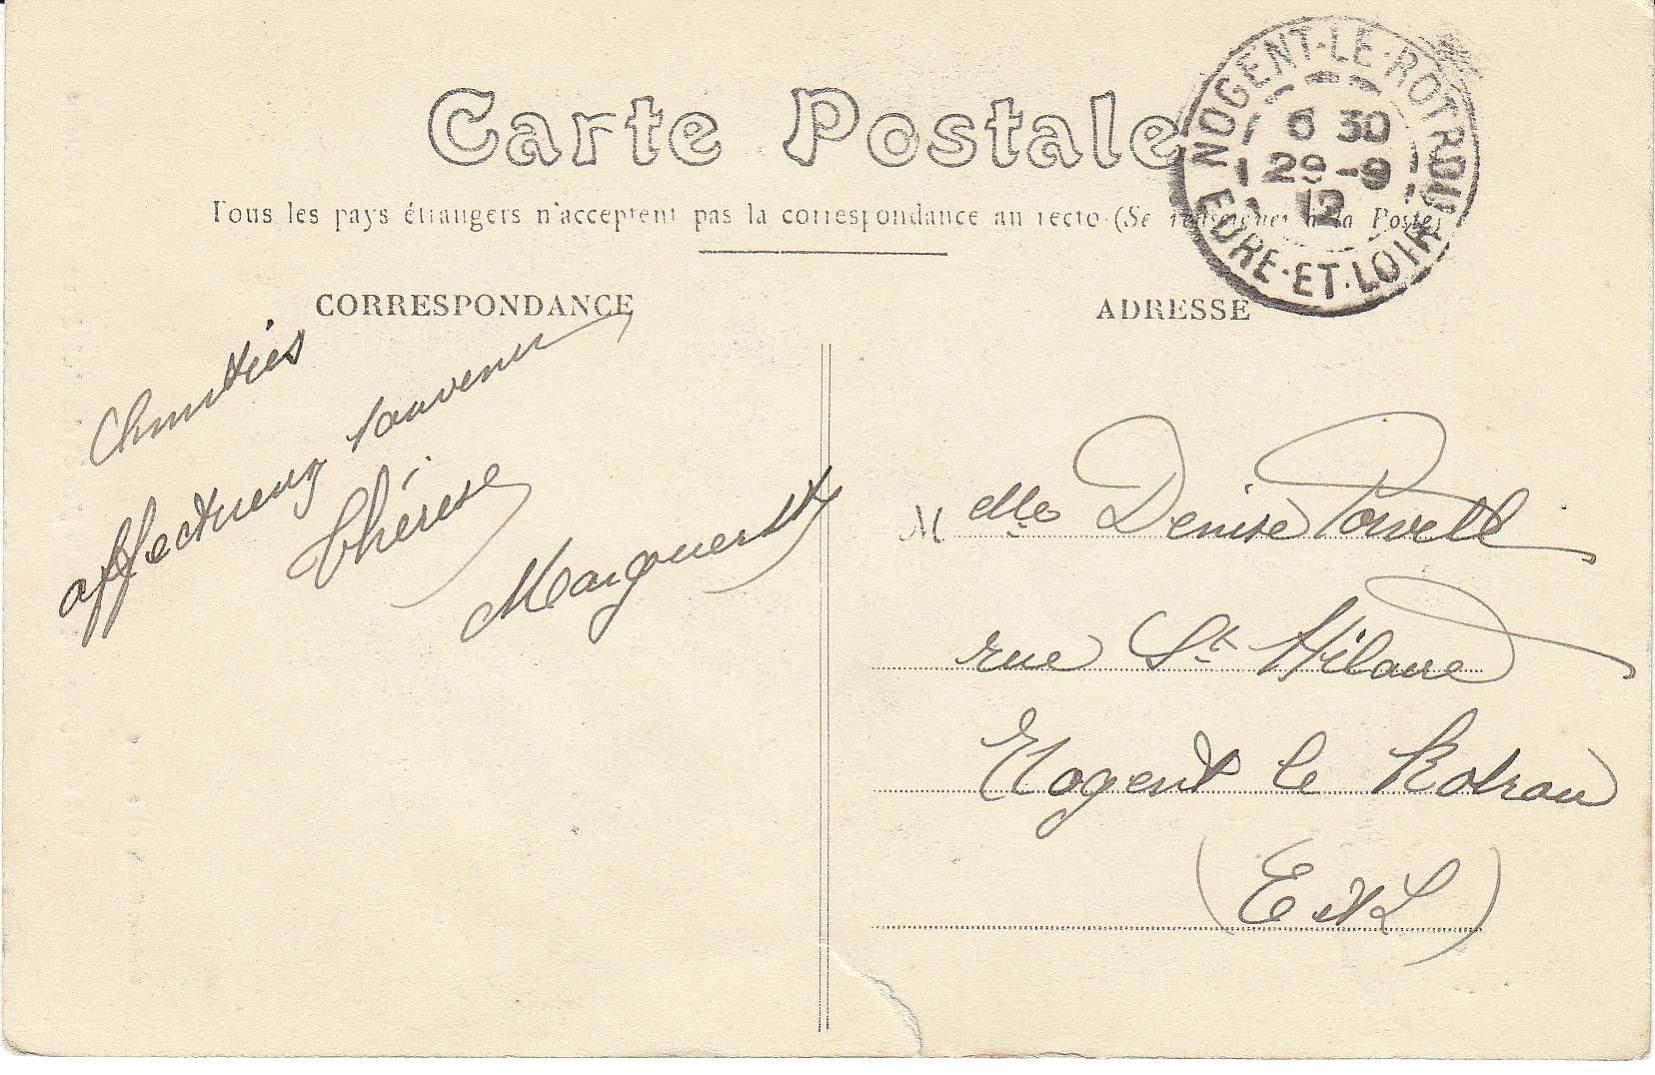 Carte Postale
NOGENT-LE-ROTROU
6 30
29-9
12
EURE-ET-LOIR
Tous les pays étrangers n'acceptent pas la correspondance au recto (Se renseigner à la Poste)
CORRESPONDANCE
affectueux souvenir
Thérèse
Marguerite
ADRESSE
Melle Denise
rue St Hilaire
Nogent le Rotrou
(E et L)